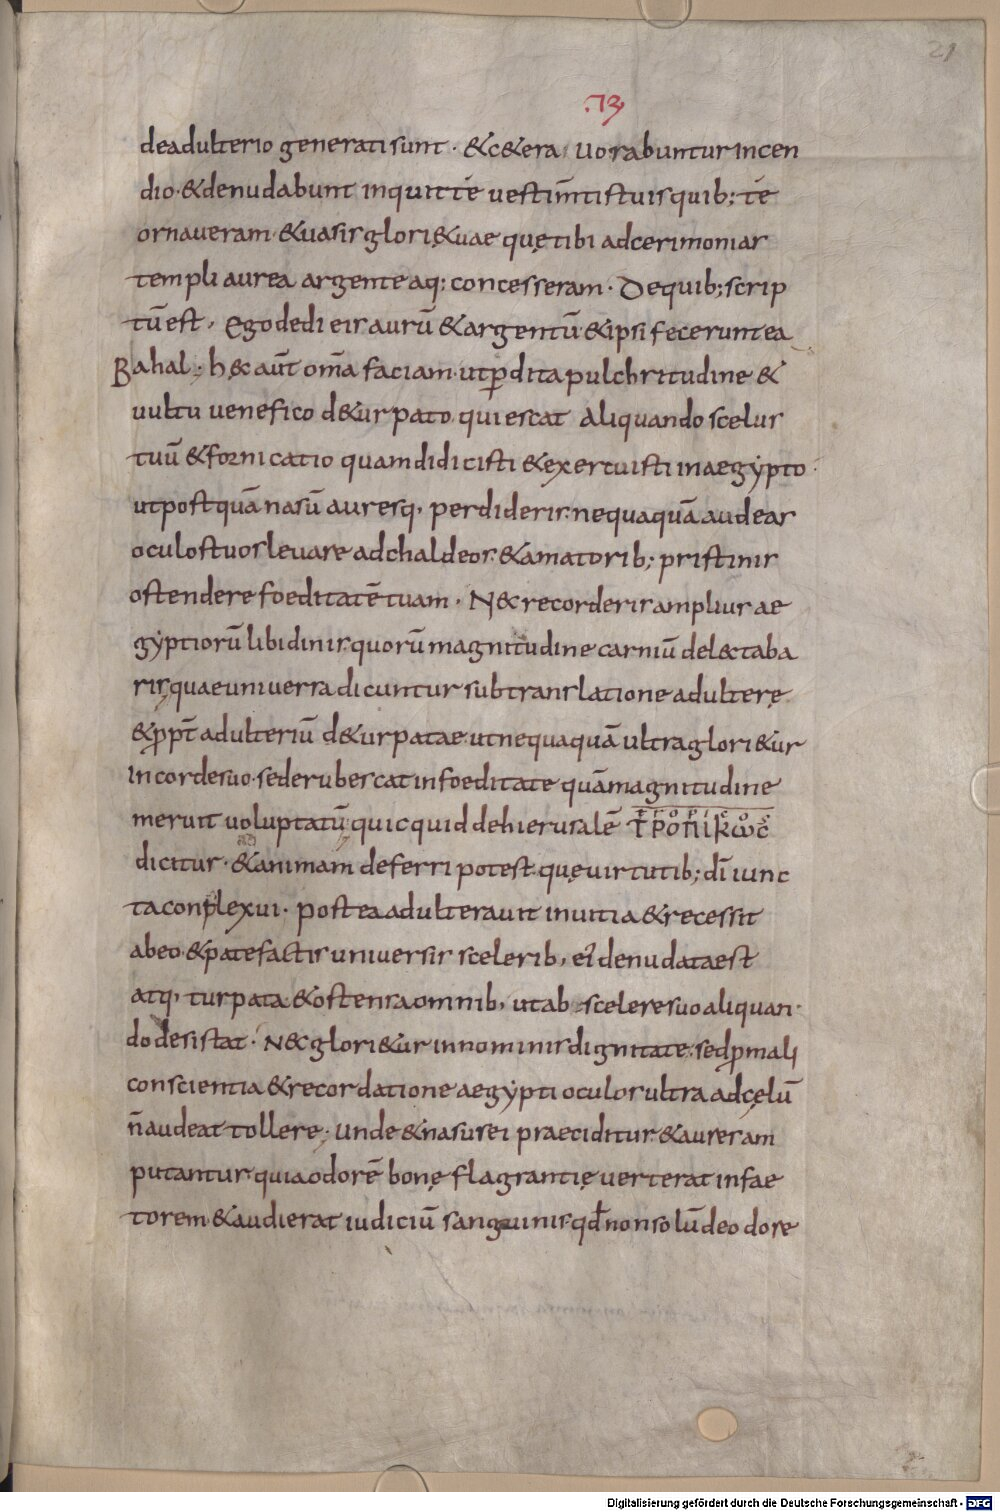 21
.73
deadulterio generati sunt · &c&era; uorabuntur incen
dio · & denudabunt inquit te uestim̄tis tuis quib; te
ornaueram · & uasis glori&uae quę tibi ad cerimonias
templi aurea argenteaq: concesseram · De quib; scrip
tū est · Ego dedi eis aurū & argentū & ipsi fecerunt ea
Bahal · hęc aūt om̄a faciam ut p̱dita pulchritudine &
uultu uenefico d&urpato quiescat aliquando scelus
tuū & fornicatio quam didicisti & exercuisti in aegẏpto ·
ut postquā nasū auresq, perdideris · nequaquā audeas
oculos tuos leuare ad chaldeos · & amatorib; pristinis
ostendere foeditatē tuam · N&c recorderis amplius ae
gẏptiorū libidinis quorū magnitudine carniū del&taba
ris, quae uniuersa dicuntur sub translatione adulterę
& ꝓpt̄ adulteriū d&urpatae · ut nequaquā ultra glori&ur
in corde suo · sed erubescat in foeditate quā magnitudine
meruit uoluptatū · quicquid de hierusalē ΤΡΟΠΙΚΩC
dicitur · & animam deferri potest quę uirtutib; dī iunc
ta conplexui · postea adulterauit in uitia & recessit
ab eo · & patefactis uniuersis scelerib, ei denudata est
atq, turpata & ostensa omnib, ut ab scelere suo aliquan
do desistat · N&c glori&ur in nominis dignitate · sed p̱ mali
conscientia & recordatione aegẏpti oculos ultra ad cęlū
n̄ audeat tollere; unde & nasus ei praeciditur & aures am
putantur quia odorē bonę flagrantię uerterat in fae
torem & audierat iudiciū sanguinis · qđ non solū de odore
Digitalisierung gefördert durch die Deutsche Forschungsgemeinschaft - DFG